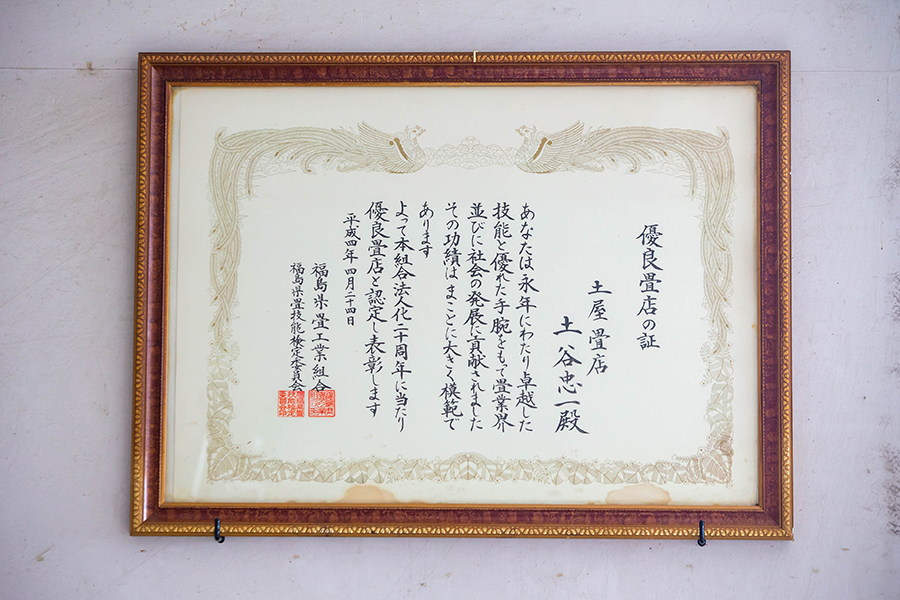 優良畳店の証
土屋畳店
土谷忠一殿
あなたは永年にわたり卓越した
技能と優れた手腕をもって畳業界
並びに社会の発展に貢献されました
その功績はまことに大きく模範で
あります
よって本組合法人化二十周年に当たり
優良畳店と認定し表彰します
平成四年四月二十四日
福島県畳工業組合
福島県畳技能検定委員会